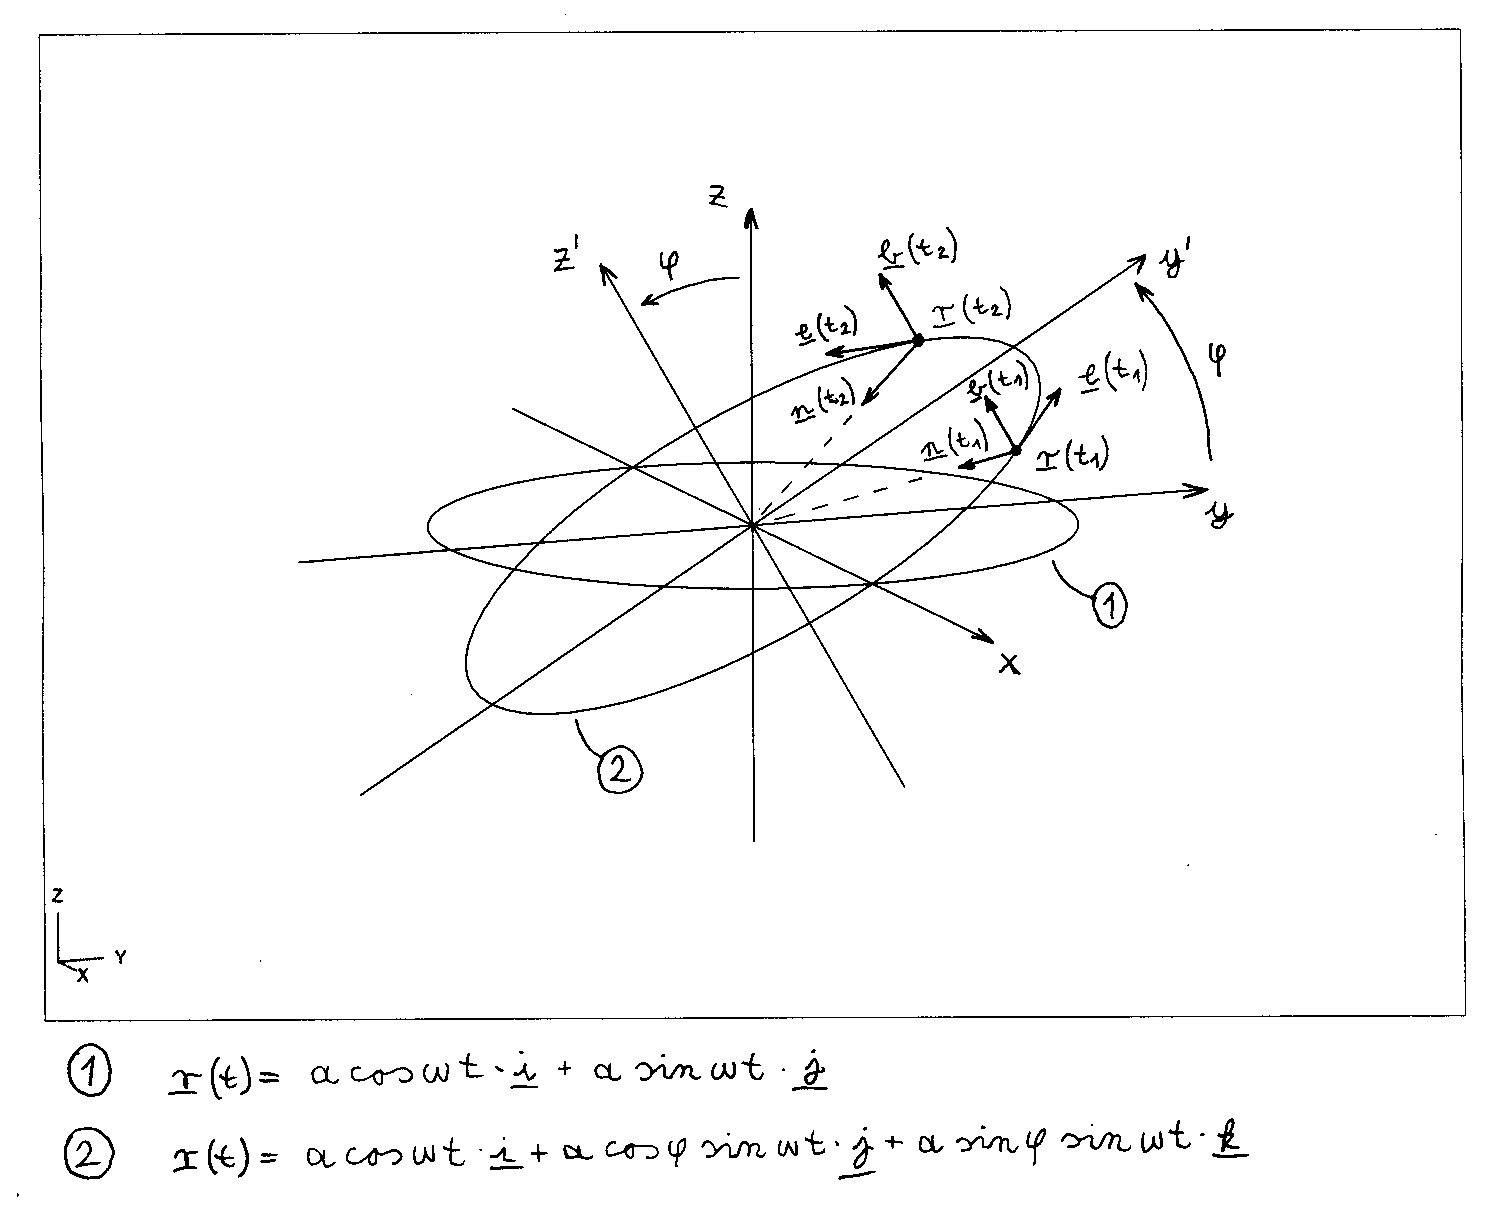 z
z'
φ
b(t2)
y'
r(t2)
t(t2)
φ
b(t1)
t(t1)
n(t2)
n(t1)
r(t1)
y
1
x
2
Z
Y
X
1 r(t) = a cos ωt · i + a sin ωt · j
2 r(t) = a cos ωt · i + a cos φ sin ωt · j + a sin φ sin ωt · k